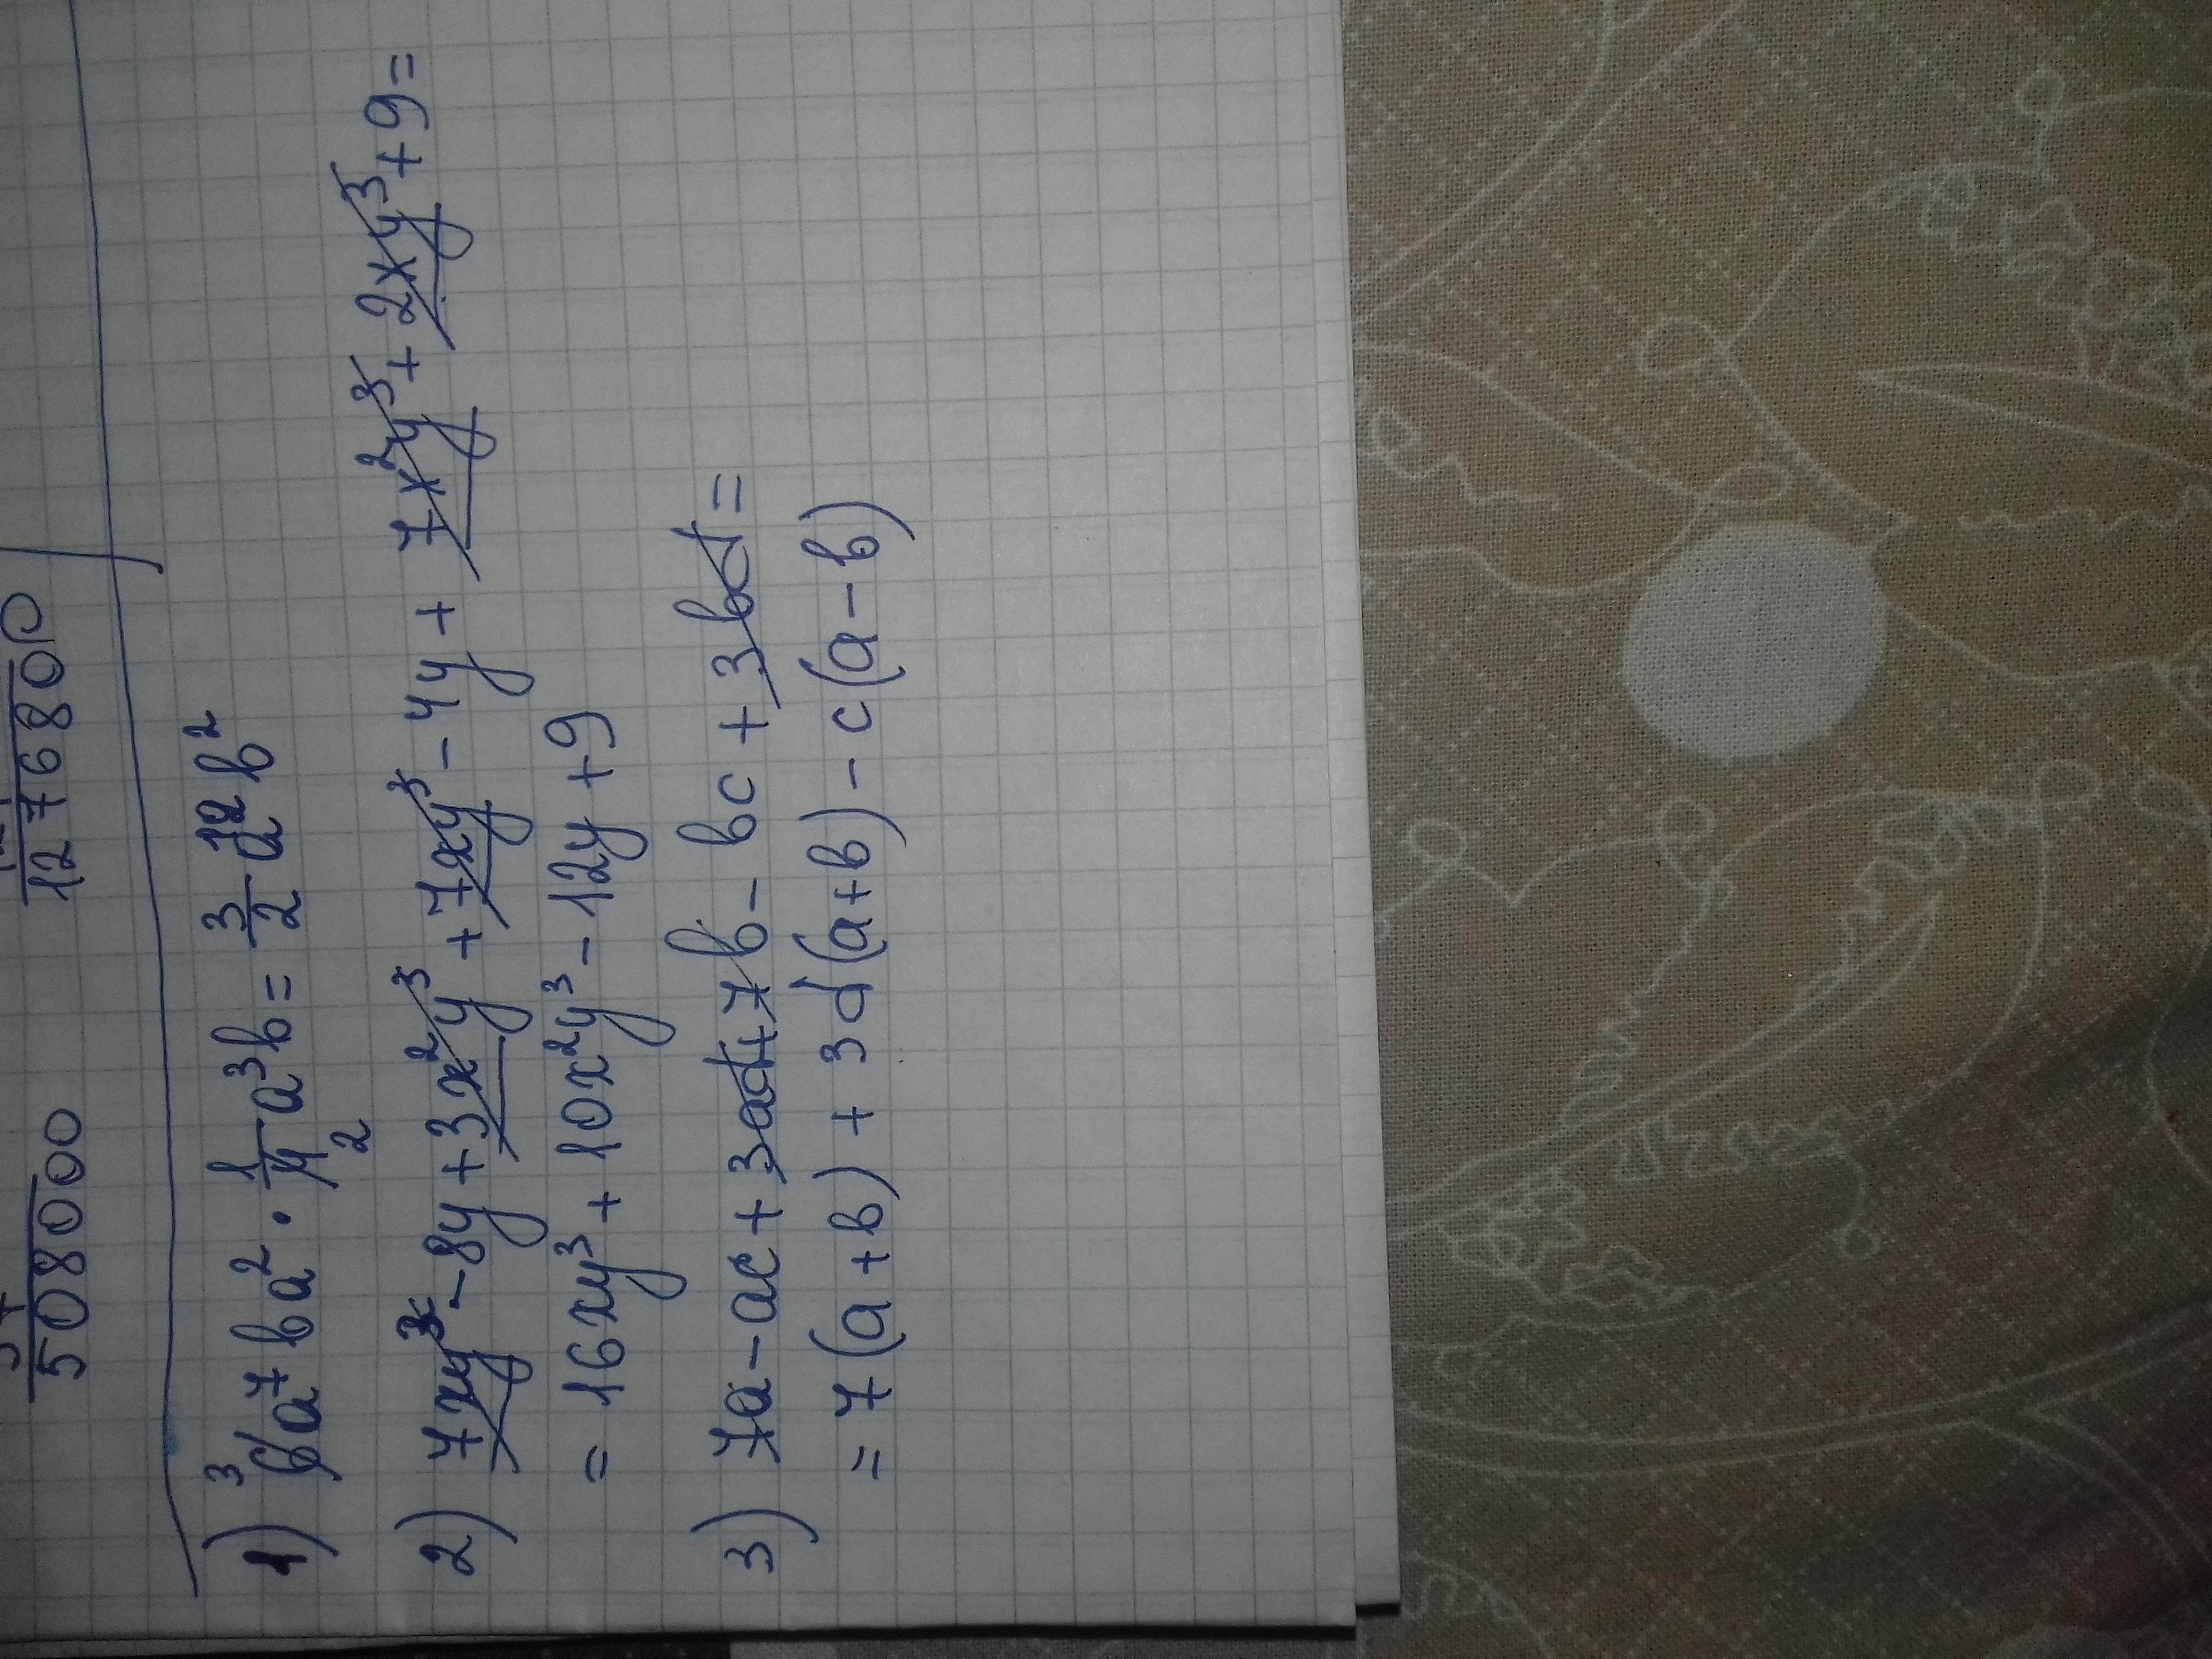 508000
127680
1) 6a⁷ba² · 1/4 a³b = 3/2 a¹²b²
3
2
2) 7xy³ - 8y + 3x²y³ + 7xy³ - 4y + 7x²y³ + 2xy³ + 9 =
= 16xy³ + 10x²y³ - 12y + 9
3) 7a - ac + 3ad + 7b - bc + 3bd =
= 7(a+b) + 3d(a+b) - c(a-b)